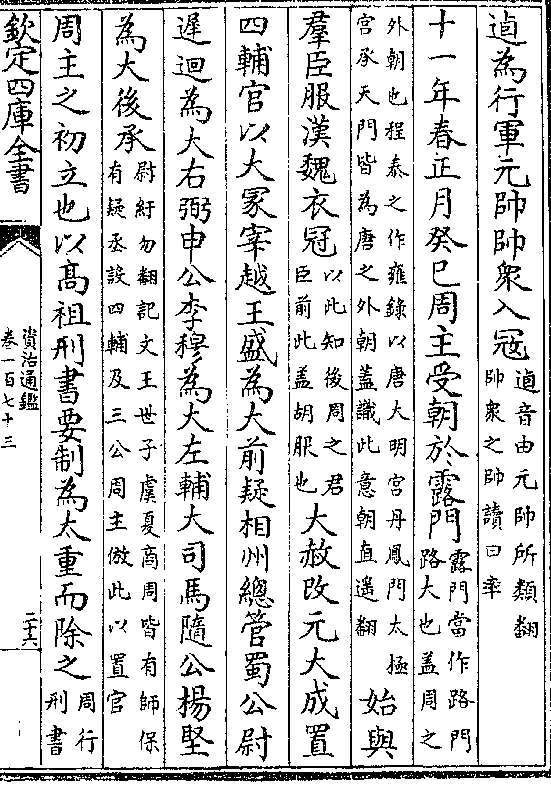 逌為行軍元帥帥衆入冦逌音由元帥所類翻帥衆之帥讀曰率
十一年春正月癸巳周主受朝於露門露門當作路門路大也蓋周之
外朝也程泰之作雍錄以唐大明宫丹鳳門太極宫承天門皆為唐之外朝蓋識此意朝直遥翻始與
羣臣服漢魏衣冠以此知後周之君臣前此盖胡服也大赦改元大成置
四輔官以大冢宰越王盛為大前疑相州總管蜀公尉
遲迥為大右弼申公李穆為大左輔大司馬隨公楊堅
為大後承尉紆勿翻記文王世子虞夏商周皆有師保有疑丞設四輔及三公周主倣此以置官
周主之初立也以高祖刑書要制為太重而除之周行刑書
欽定四庫全書
資治通鑑
卷一百七十三
二十六